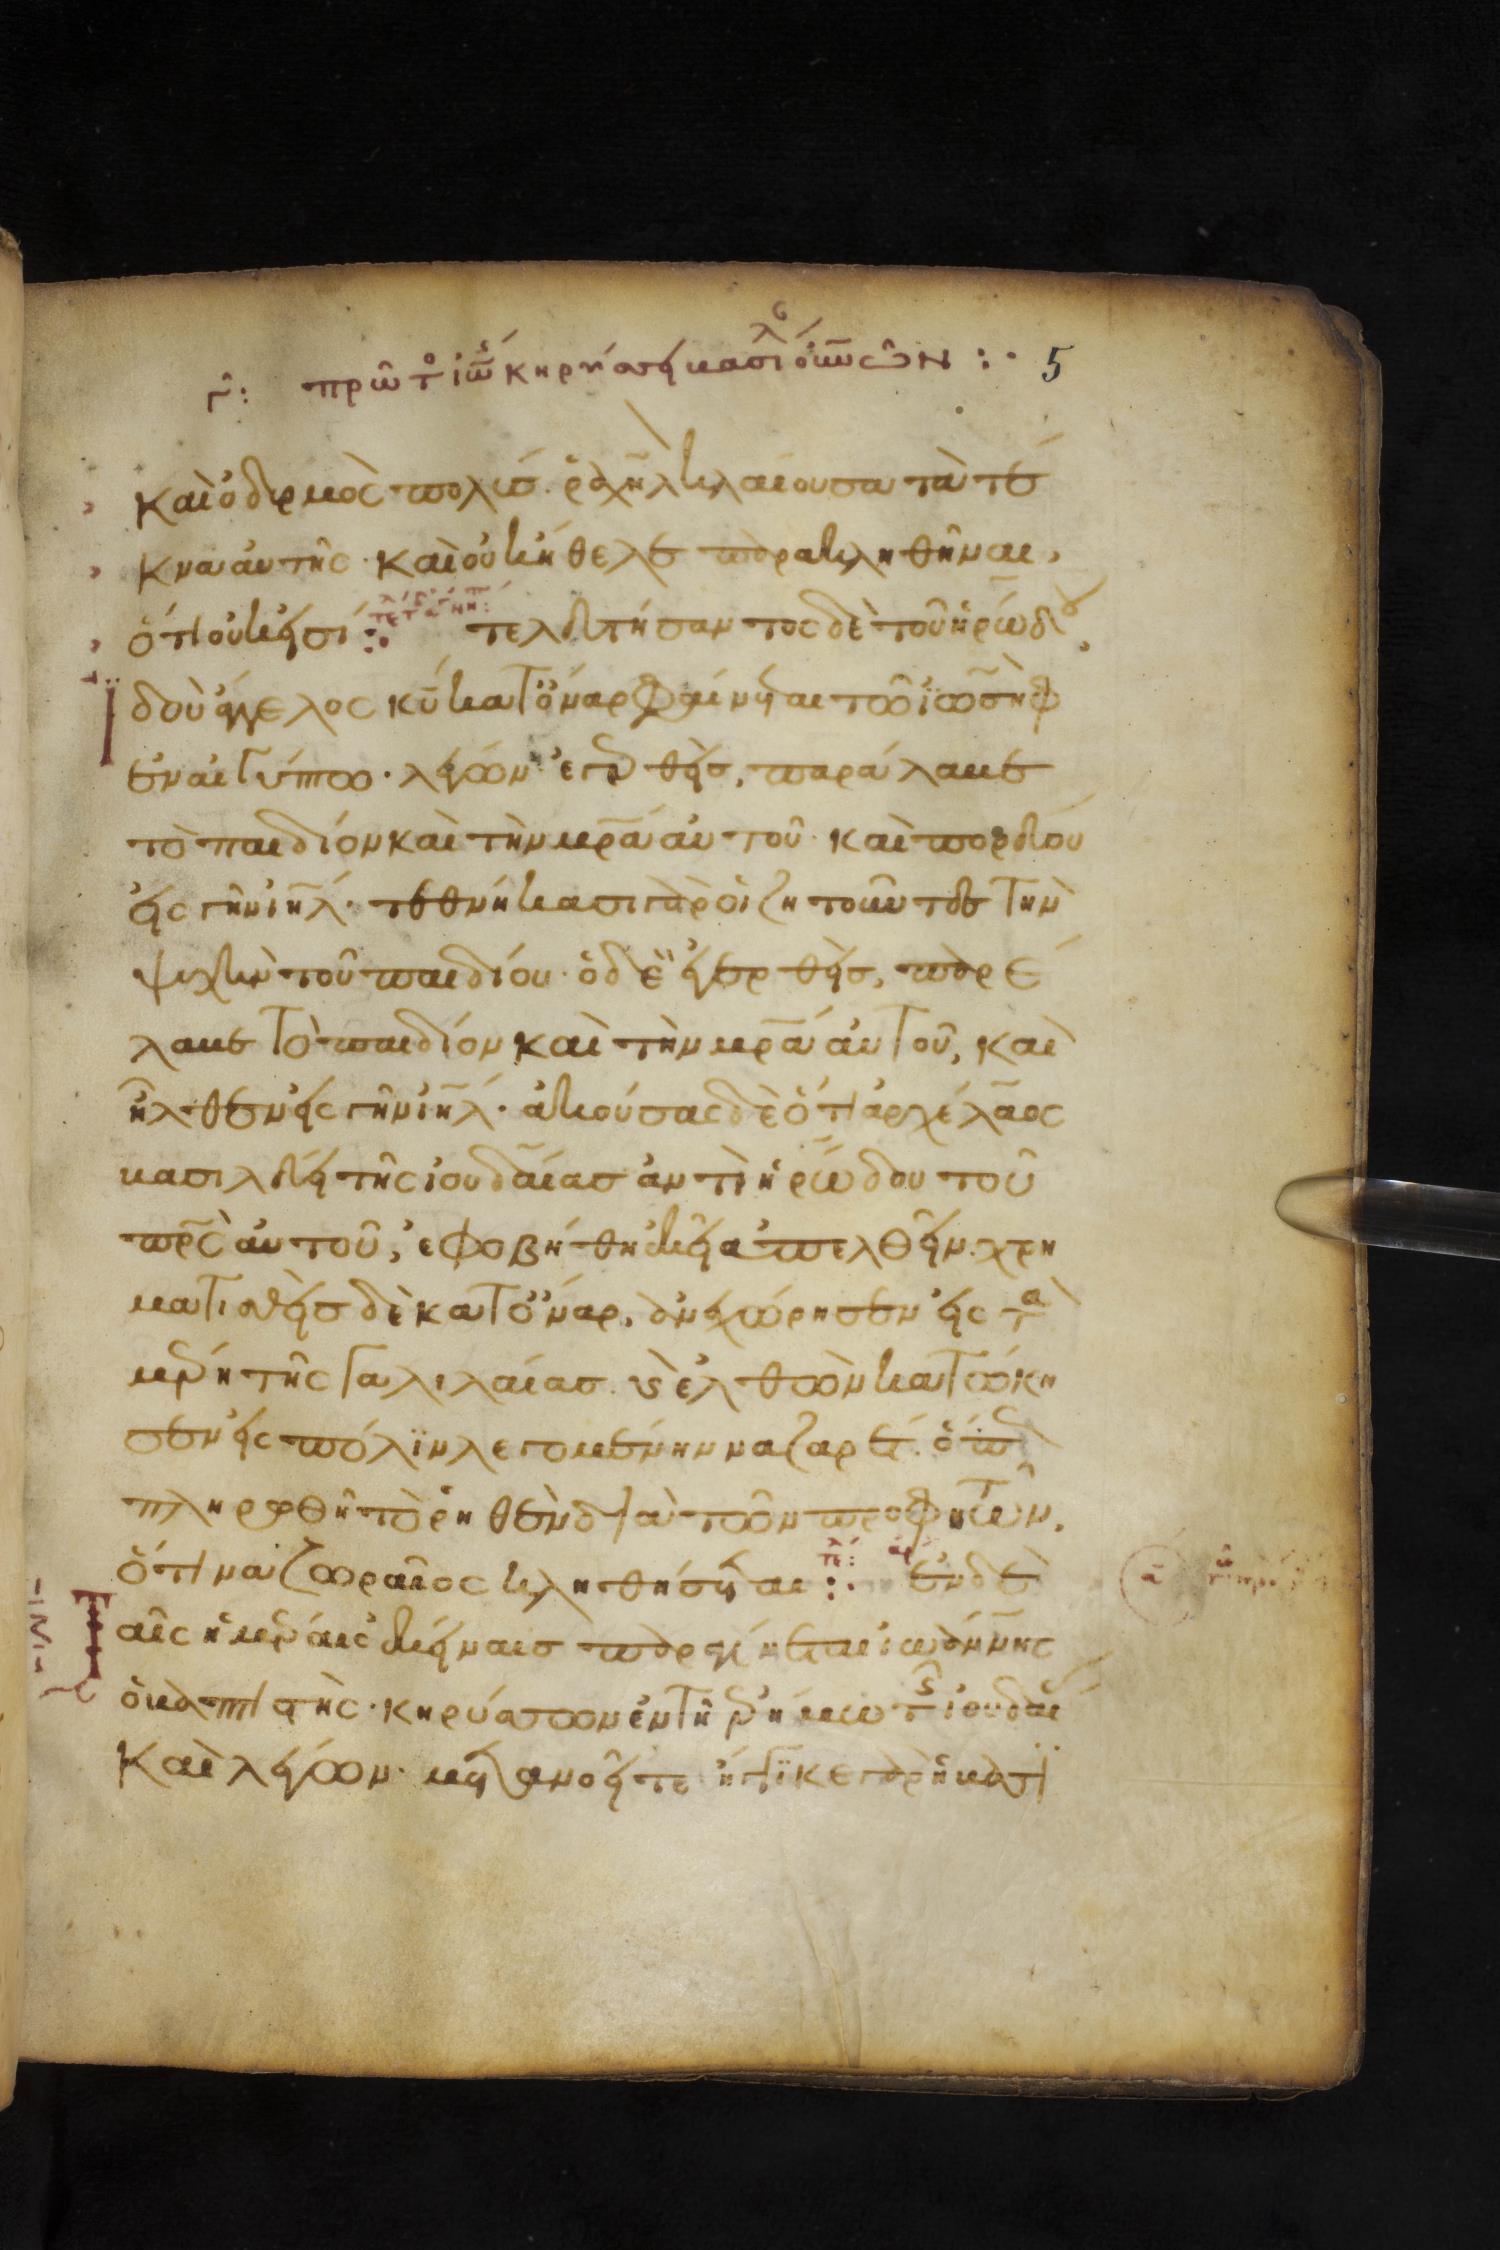 γ: πρῶτ ἰω κηρύσσει βασιλ οὐνῶν : · 5
καὶ ὀδυρμὸς πολύς. ῥαχὴλ κλαίουσα τὰ τέ
κνα αὐτῆς. καὶ οὐκ ἤθελε παρακληθῆναι,
ὅτι οὐκ εἰσί : τελευτήσαντος δὲ τοῦ ἡρώδου,
ἰδοὺ ἄγγελος κυ κατ ὄναρ φαίνεται τῶ ἰωσὴφ
ἐν αἰγύπτω. λέγων. ἐγερθεὶς, παράλαβε
τὸ παιδίον καὶ τὴν μρα αὐτοῦ. καὶ πορεύου
εἰς γῆν ιηλ. τεθνήκασι γὰρ οἱ ζητοῦντες τὴν
ψυχὴν τοῦ παιδίου. ὁ δὲ ἐγερθεὶς, παρέ
λαβε τὸ παιδίον καὶ τὴν μρα αὐτοῦ, καὶ
ἦλθεν εἰς γῆν ιηλ. ἀκούσας δὲ ὅτι ἀρχέλαος
βασιλεύει τῆς ἰουδαίας ἀντὶ ἡρώδου τοῦ
πρς αὐτοῦ, ἐφοβήθη ἐκεῖ ἀπελθεῖν. χρη
ματισθεὶς δὲ κατ ὄναρ, ἀνεχώρησεν εἰς τὰ
μέρη τῆς γαλιλαίας. ϛ ἐλθὼν κατώκη
σεν εἰς πόλιν λεγομένην ναζαρέτ. ὅπως
πληρωθῆ τὸ ῥηθὲν διὰ τῶν προφητῶν,
ὅτι ναζωραῖος κληθήσεται : ἐν δὲ
ταῖς ἡμέραις ἐκείναις παραγίνεται ἰωάννης
ὁ βαπτιστὴς. κηρύσσων ἐν τῆ ἐρήμω τῆς ἰουδαί
καὶ λέγων. μετανοεῖτε ἤγγικε γὰρ ἡ βασι